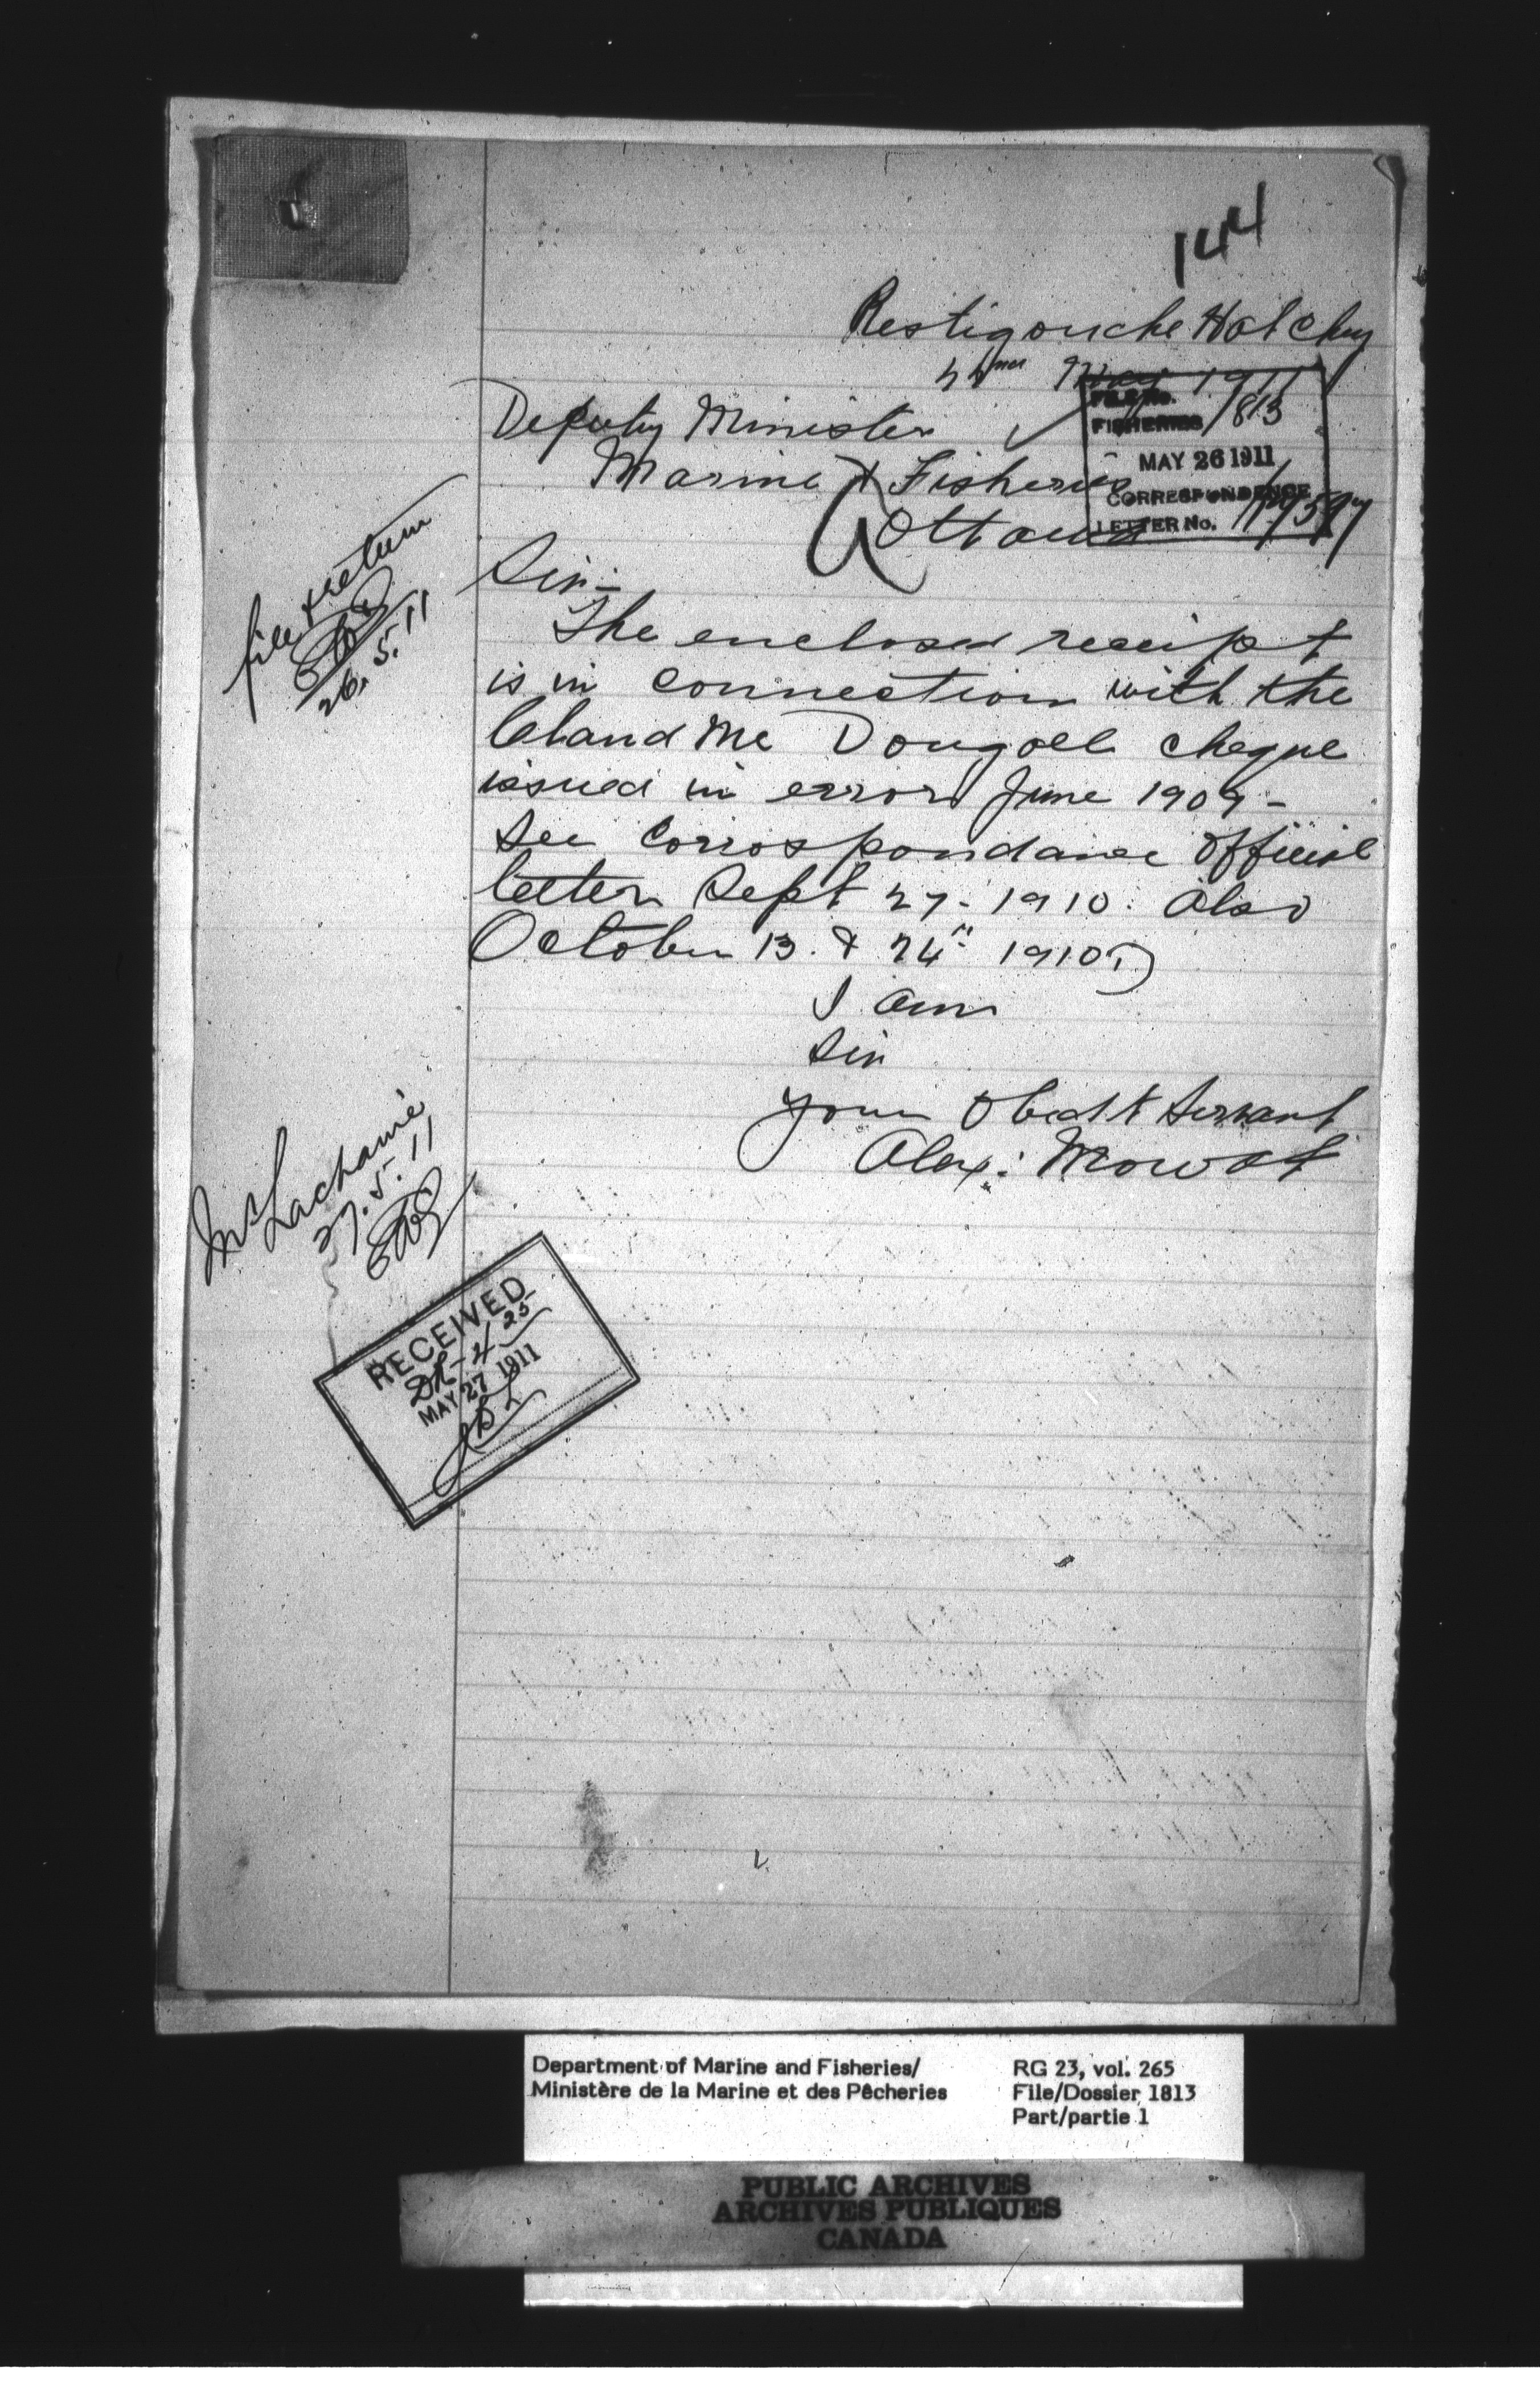 144
Restigouche Hatchery
22nd May 1911
Deputy Minister
Marine & Fisheries
Ottawa
FILE No.
FISHERIES 1813
MAY 26 1911
CORRESPONDENCE
LETTER No.
file & return
26.5.11
Sir:-
The enclosed receipt
is in connection with the
Chand Mc Dougall cheque
issued in error June 1909-
See Corrospondance Official
letter Sept 27-1910. also
October 13. & 24" 1910.
I am
Sir
Your Obedt Servant
Alex: Mowat
Mr Lachanie
27.5.11
RECEIVED
MAY 27 1911
Department of Marine and Fisheries/
Ministère de la Marine et des Pêcheries
RG 23, vol. 265
File/Dossier 1813
Part/partie 1
PUBLIC ARCHIVES
ARCHIVES PUBLIQUES
CANADA